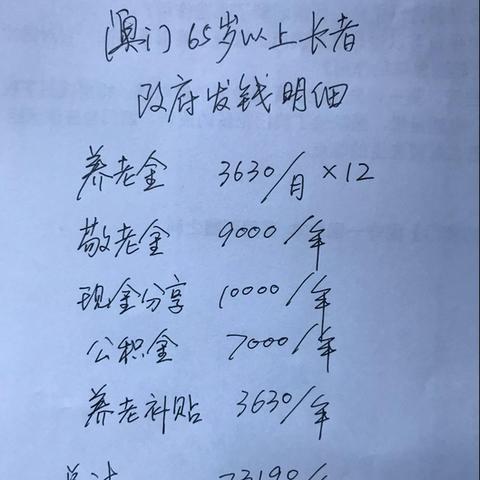 澳门65岁以上长者
政府发钱明细
养老金 3630/月×12
敬老金 9000/年
现金分享 10000/年
公积金 7000/年
养老补贴 3630/年
总计 73190/